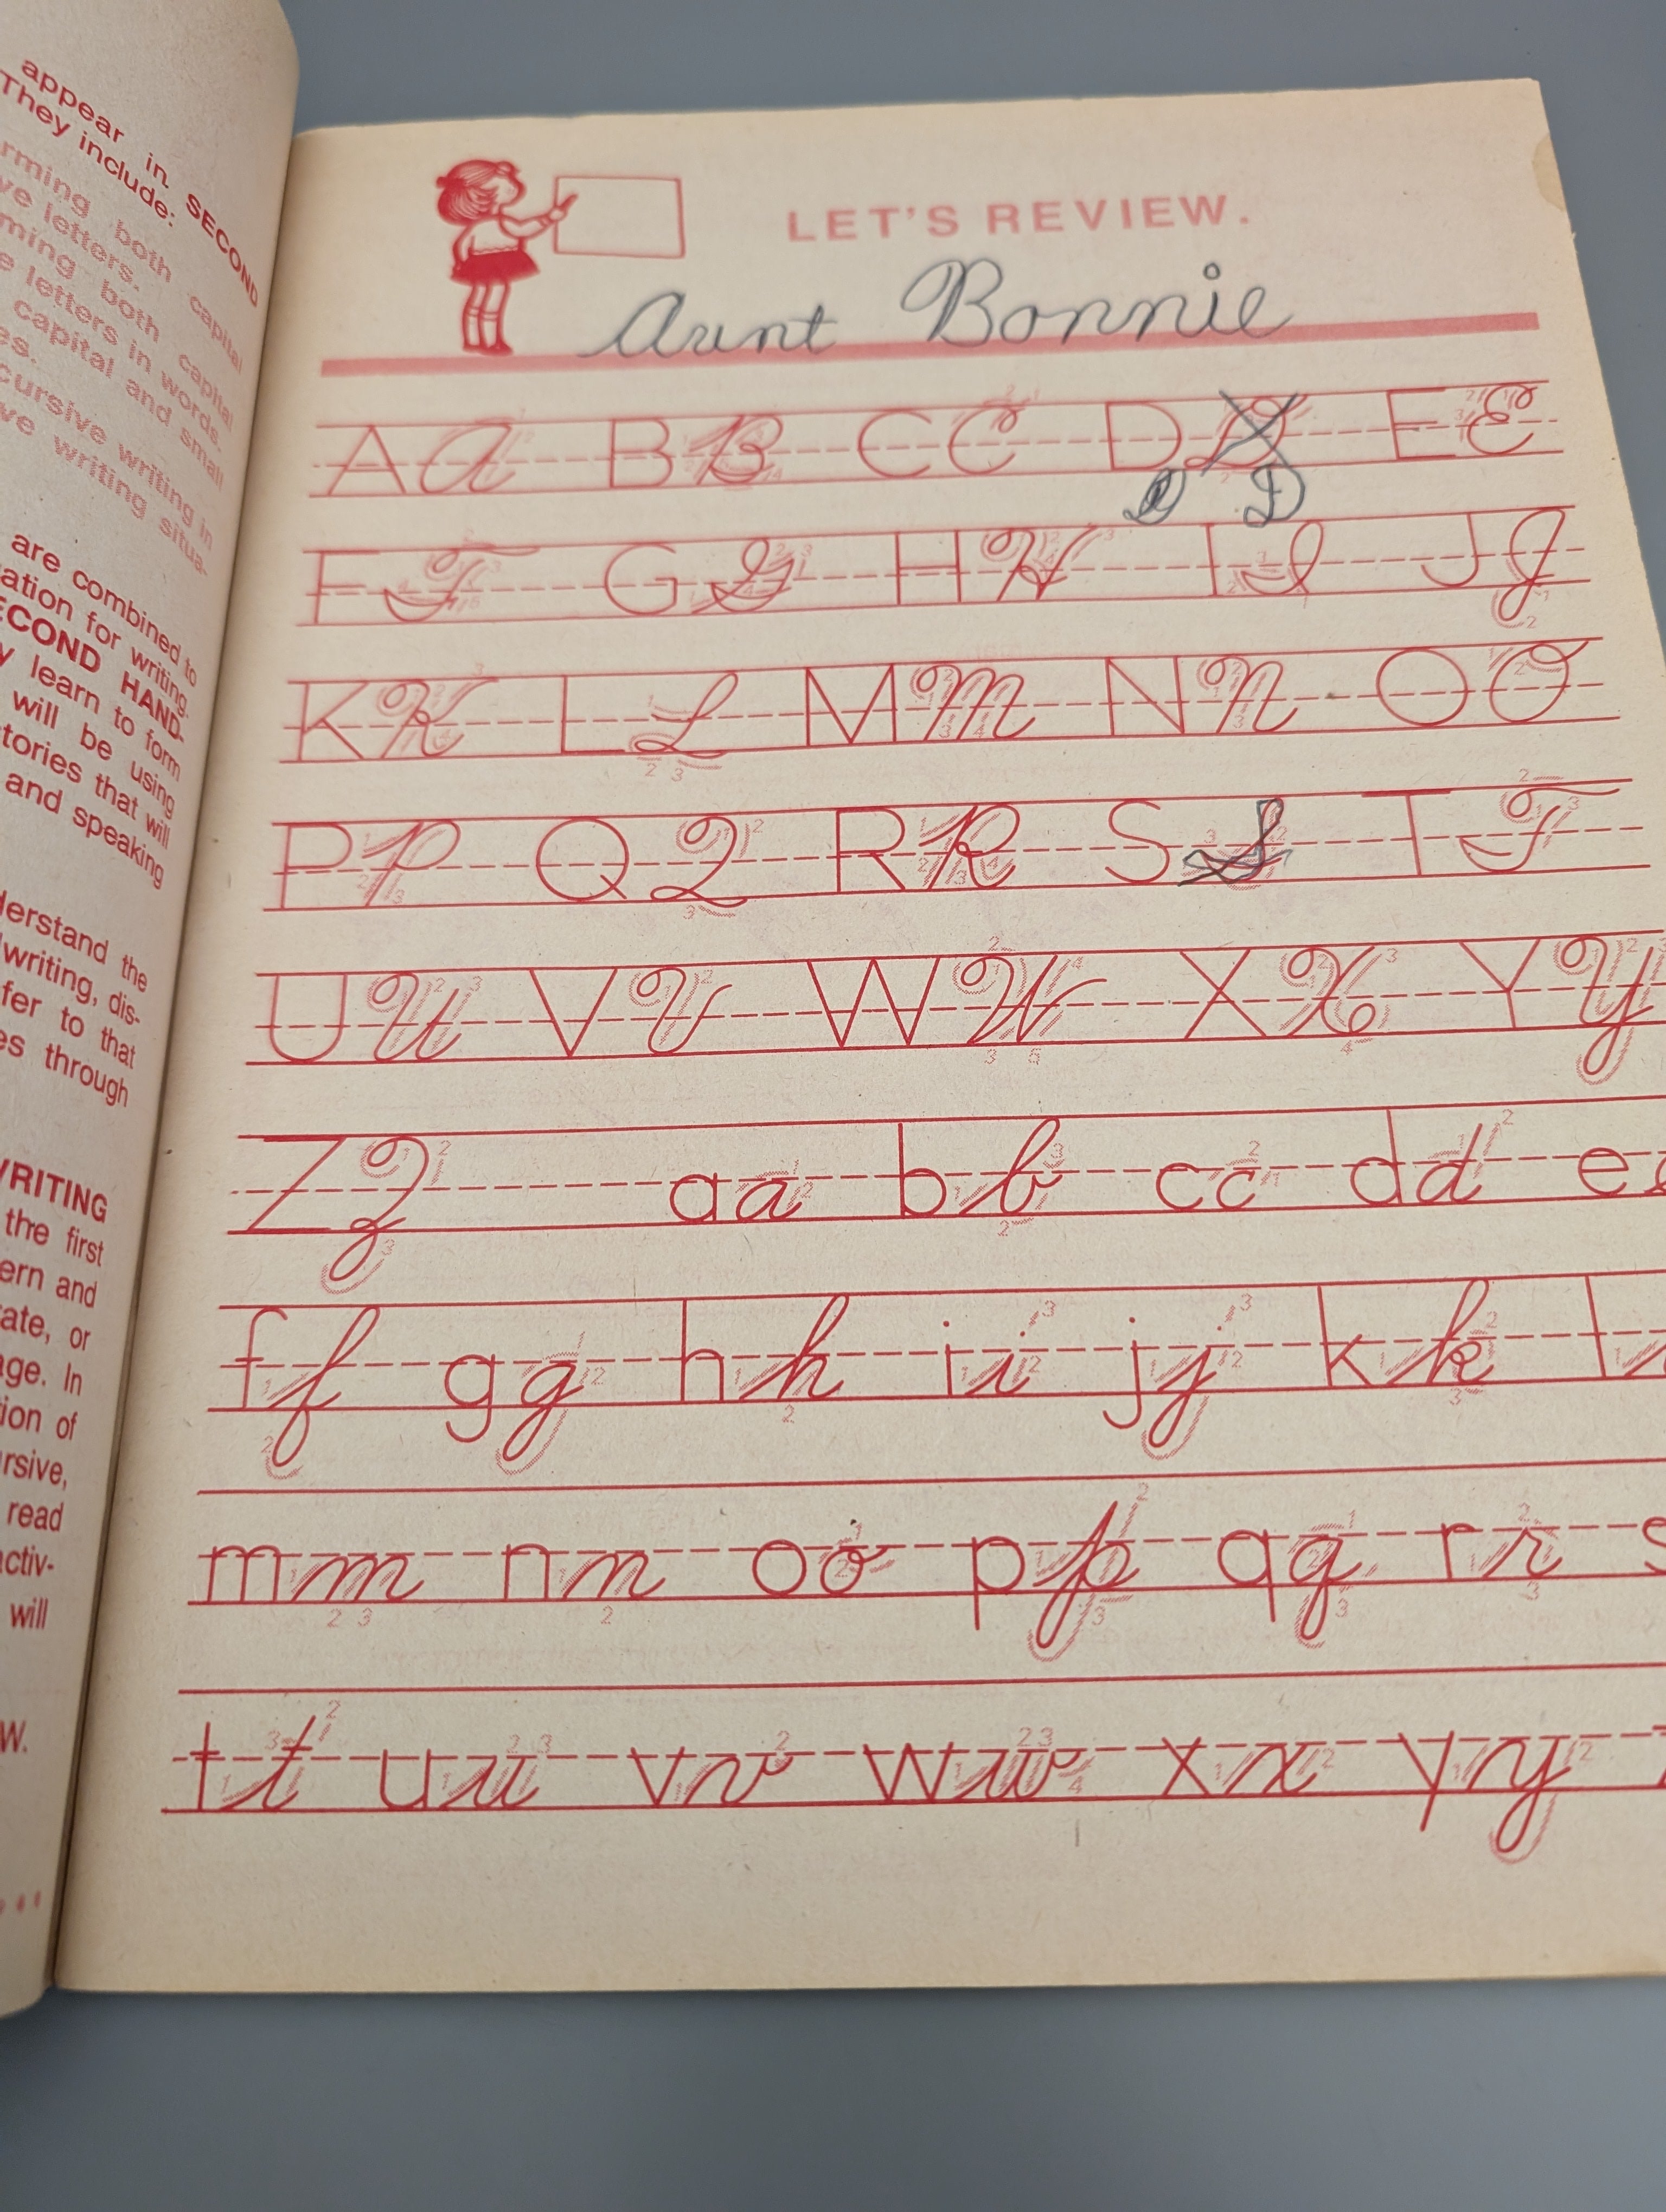 appear in SECOND
They include:
both capital
letters.
both capital
letters in words.
capital and small
cursive writing in
writing
are combined to
for writing.
SECOND HAND-
learn to form
will be using
stories that will
and speaking
the
writing, dis-
to that
through
the first
and
or
In
of
read
will
LET'S REVIEW.
Aunt Bonnie
A A B B C C D D E E
D D
F F G G H H I I J J
K K L L M M N N O O
P P Q Q R R S S T T
U U V V W W X X Y Y
Z Z a a b b c c d d e
f f g g h h i i j j k k l l
m m n n o o p p q q r r s
t t u u v v w w x x y y